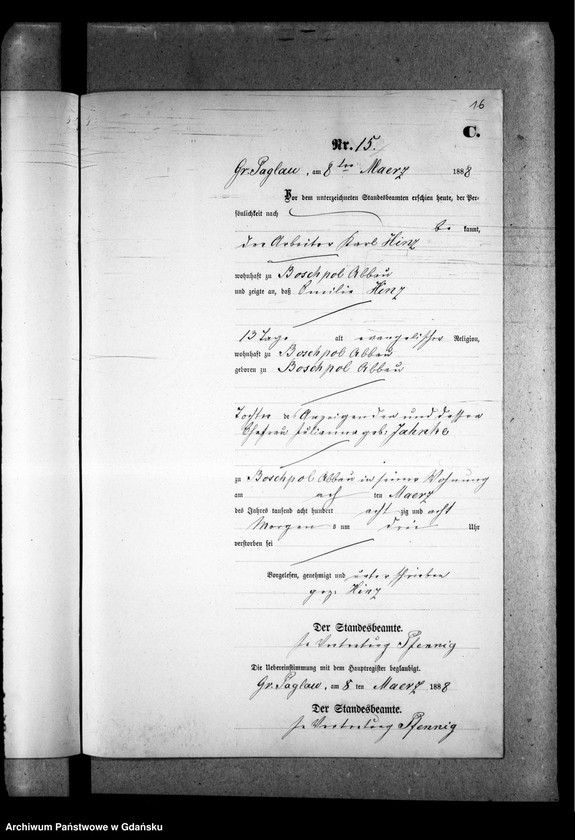 16
C.
Nr. 15.
Gr. Paglau, am 8ten Maerz 1888
Vor dem unterzeichneten Standesbeamten erschien heute, der Per-
sönlichkeit nach
be kannt,
der Arbeiter Karl Hinz
wohnhaft zu Boschpol Abbau
und zeigte an, daß Emilie Hinz
13 Tage alt evangelischer Religion,
wohnhaft zu Boschpol Abbau
geboren zu Boschpol Abbau
Tochter des Anzeigenden und dessen
Ehefrau Julianna geb: Jahnke
zu Boschpol Abbau in seiner Wohnung
am acht ten Maerz
des Jahres tausend acht hundert acht zig und acht
Morgens um drei Uhr
verstorben sei
Vorgelesen, genehmigt und unterschrieben
gez. Hinz
Der Standesbeamte.
In Vertretung Pfennig
Die Uebereinstimmung mit dem Hauptregister beglaubigt.
Gr. Paglau, am 8 ten Maerz 1888
Der Standesbeamte.
In Vertretung Pfennig
Archiwum Państwowe w Gdańsku